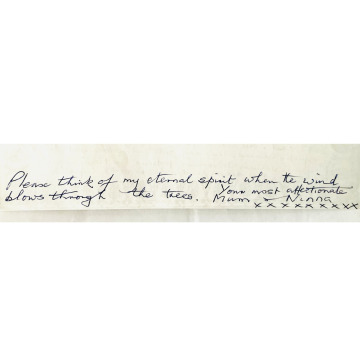 Please think of my eternal spirit when the wind
blows through the trees. Your most affectionate
Mum & Ninna
x x x x x x x x x